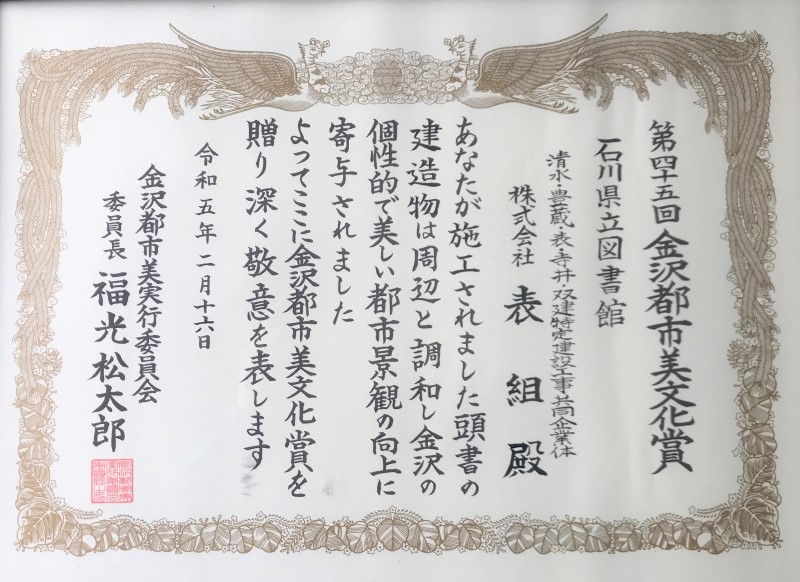 第四十五回 金沢都市美文化賞
石川県立図書館
清水・豊蔵・表・寺井・双建特定建設工事共同企業体
株式会社 表組殿
あなたが施工されました頭書の
建造物は周辺と調和し金沢の
個性的で美しい都市景観の向上に
寄与されました
よってここに金沢都市美文化賞を
贈り深く敬意を表します
令和五年二月十六日
金沢都市美実行委員会
委員長 福光松太郎